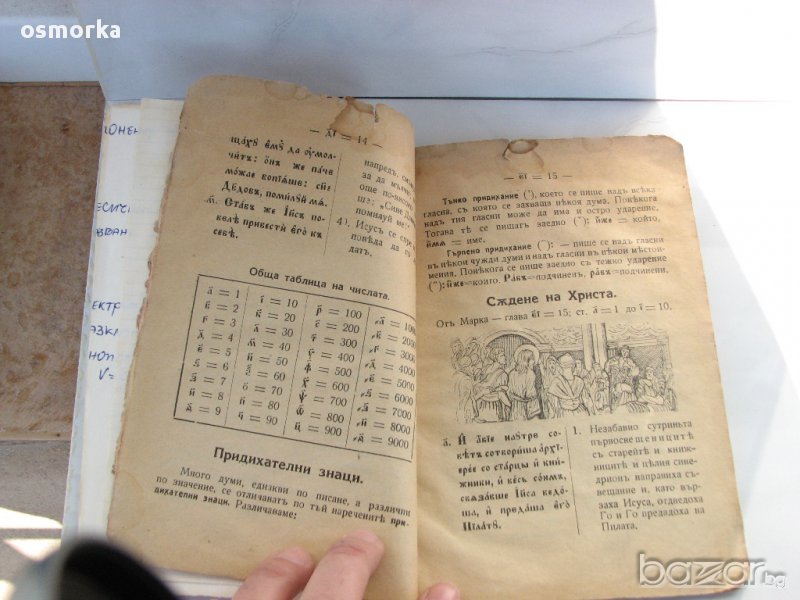 osmorka
— д҃і = 14 —
щахꙋ ємꙋ̀ да ᲂу҆мол-
читъ: ѻ҆нъ же паче
можае вопїѧше: сн҃е
Дв҃довъ, помилꙋй мѧ.
м҃. Ставъ же І҆и҃съ по-
велѣ привести є҆го̀ къ
себѣ.
напредъ,
за да
още по-
шъ: „Сине
помилуй ме“.
Исусъ се спре
повѣда да го
датъ.
Обща таблица на числата.
а҃ = 1 і҃ = 10 р҃ = 100 ҂а҃ = 1000
в҃ = 2 к҃ = 20 с҃ = 200 ҂в҃ = 2000
г҃ = 3 л҃ = 30 т҃ = 300 ҂г҃ = 3000
д҃ = 4 м҃ = 40 у҃ = 400 ҂д҃ = 4000
є҃ = 5 н҃ = 50 ф҃ = 500 ҂є҃ = 5000
ѕ҃ = 6 ѯ҃ = 60 х҃ = 600 ҂ѕ҃ = 6000
з҃ = 7 ѻ҃ = 70 ѱ҃ = 700 ҂з҃ = 7000
и҃ = 8 п҃ = 80 ѿ҃ = 800 ҂и҃ = 8000
ѳ҃ = 9 ч҃ = 90 ц҃ = 900 ҂ѳ҃ = 9000
Придихателни знаци.
Много думи, еднакви по писане, а различни
по значение, се отличаватъ по тъй наречените при-
дихателни знаци. Различаваме:
— є҃і = 15 —
Тънко придихание (᾿), което се пише надъ всѣка
гласна, съ която се захваща нѣкоя дума. Понѣкога
надъ тия гласни може да има и остро ударение.
Тогава тѣ се пишатъ заедно (῎): и҆́же = който,
и҆́мѧ = име.
Гърлено придихание (῾): — пише се надъ гласни
въ нѣкои чужди думи и надъ гласни въ нѣкои мѣстои-
мения. Понѣкога се пише заедно съ тежко ударение
(῝): и҆̀же=които. Рабъ=подчиненъ, рабъ=подчинени.
Сѫдене на Христа.
Отъ Марка — глава є҃і = 15; ст. а҃ = 1 до і҃ = 10.
а҃. И҆ а҆бїе наѹтрѣ со-
вѣтъ сотвориша а҆рхї-
ерее съ старцы и҆ кни-
жники, и҆ весь сонмъ,
свѧзавше І҆и҃са ведо-
ша, и҆ предаша є҆го̀
Пїлатꙋ.
1. Незабавно сутриньта
първосвещеницитѣ
съ старейтѣ и книж-
ницитѣ и цѣлия си-
недрионъ направиха
съвещание и, като вър-
заха Исуса, отведоха
Го и Го предадоха на
Пилата.
bazar.bg